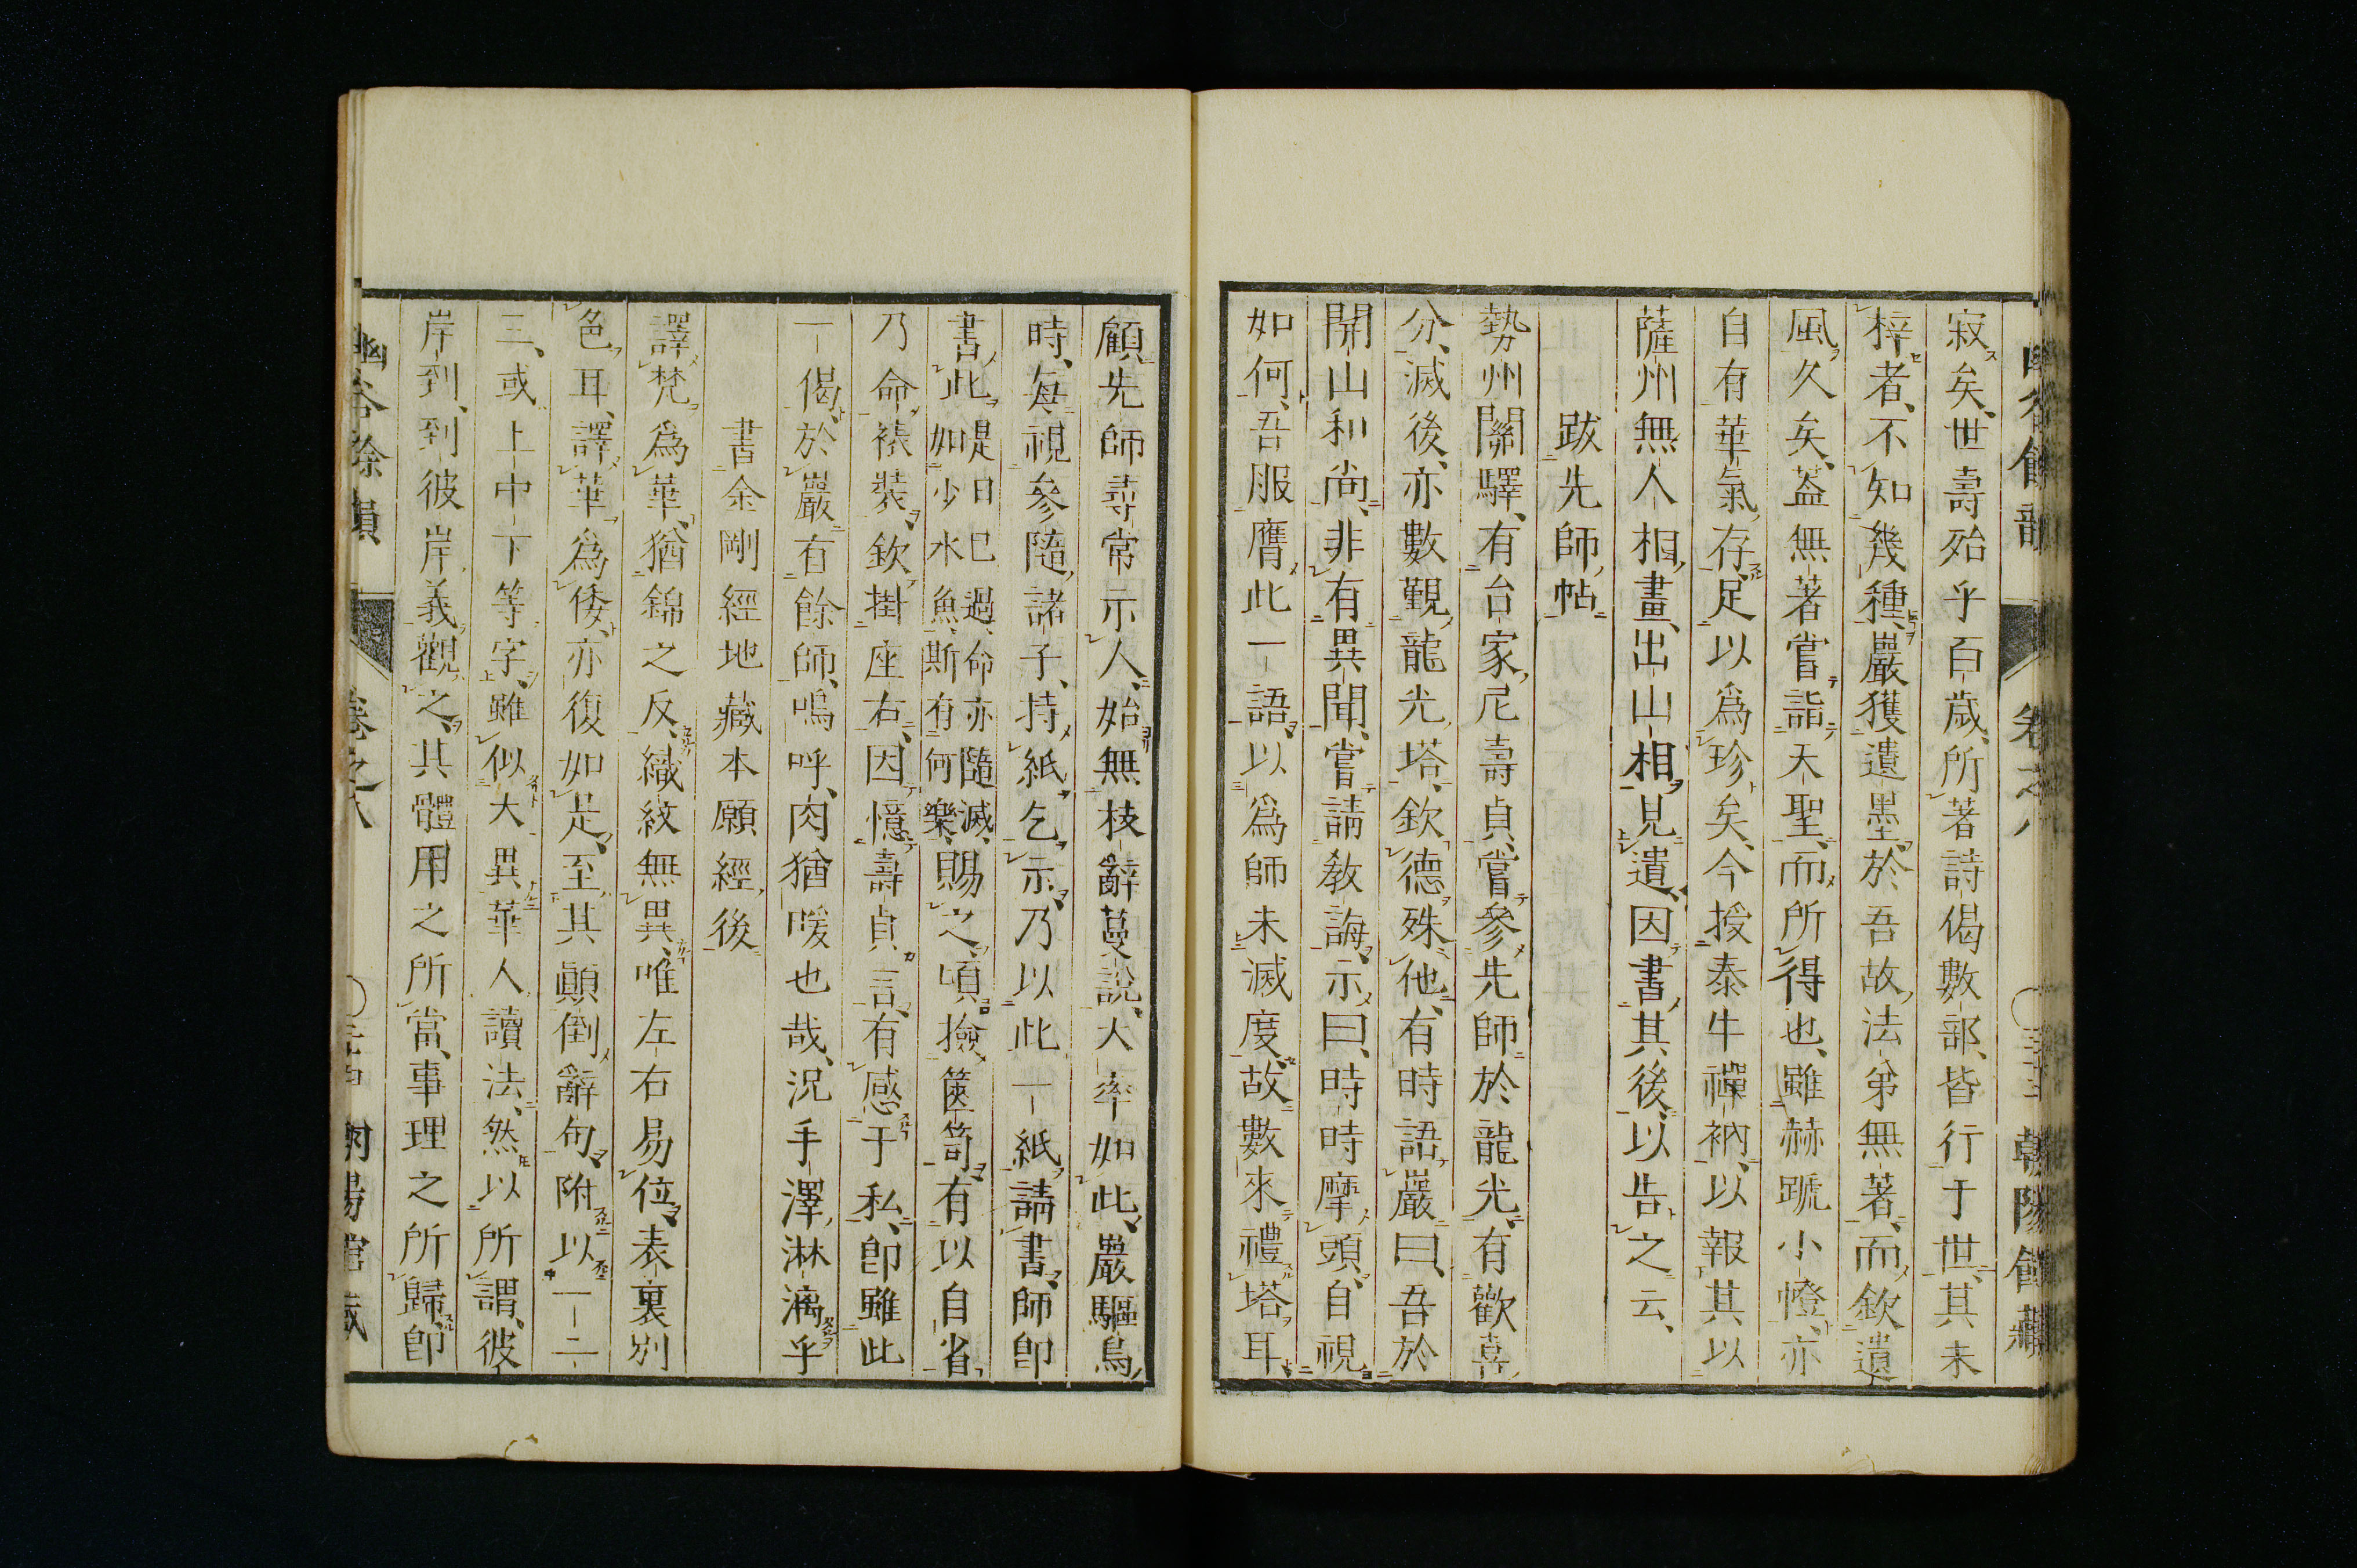 寂矣、世壽殆乎百歳、所著詩偈數部、皆行于世、其未
梓者、不知幾種、巖獲遺墨、於吾故法弟無著、而欽遺
風久矣、蓋無著嘗詣天聖、而所得也、雖赫蹏小憕、亦
自有華氣存、足以爲珍矣、今授泰牛禪衲、以報其以
薩州無人相畫、出山相見遺、因書其後、以告之云、
跋先師帖
勢州關驛、有台家尼壽貞、嘗參先師於龍光、有歡喜
分、滅後、亦數覲龍光塔、欽德殊他、有時語巖曰、吾於
開山和尚、非有異聞、嘗請教誨、示曰、時時摩頭、自視
如何、吾服膺此一語、以爲師未滅度、故數來禮塔耳、
顧先師尋常示人、始無枝辭蔓説、大率如此、巖驅烏
時、每視參隨諸子、持紙乞示、乃以此一紙請書、師卽
書此 是日已過、命亦隨滅、如少水魚、斯有何樂、賜之、頃撿篋笥、有以自省、
乃命裱裝、欽掛座右、因憶壽貞言、有感于私、卽雖此
一偈、於巖有餘師、嗚呼、肉猶暖也哉、況手澤淋漓乎
書金剛經地藏本願經後
譯梵爲華、猶錦之反、織紋無異、唯左右易位、表裏別
色耳、譯華爲倭、亦復如是、至其顚倒辭句、附以一二
三、或上中下等字、雖似大異華人讀法、然以所謂彼
岸到、到彼岸義觀之、其體用之所當、事理之所歸、卽
幽谷餘韻 卷之八